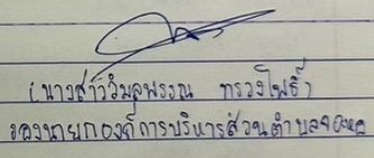 (นางสาววิมลพรรณ ทรวงโพธิ์)
รองนายกองค์การบริหารส่วนตำบล